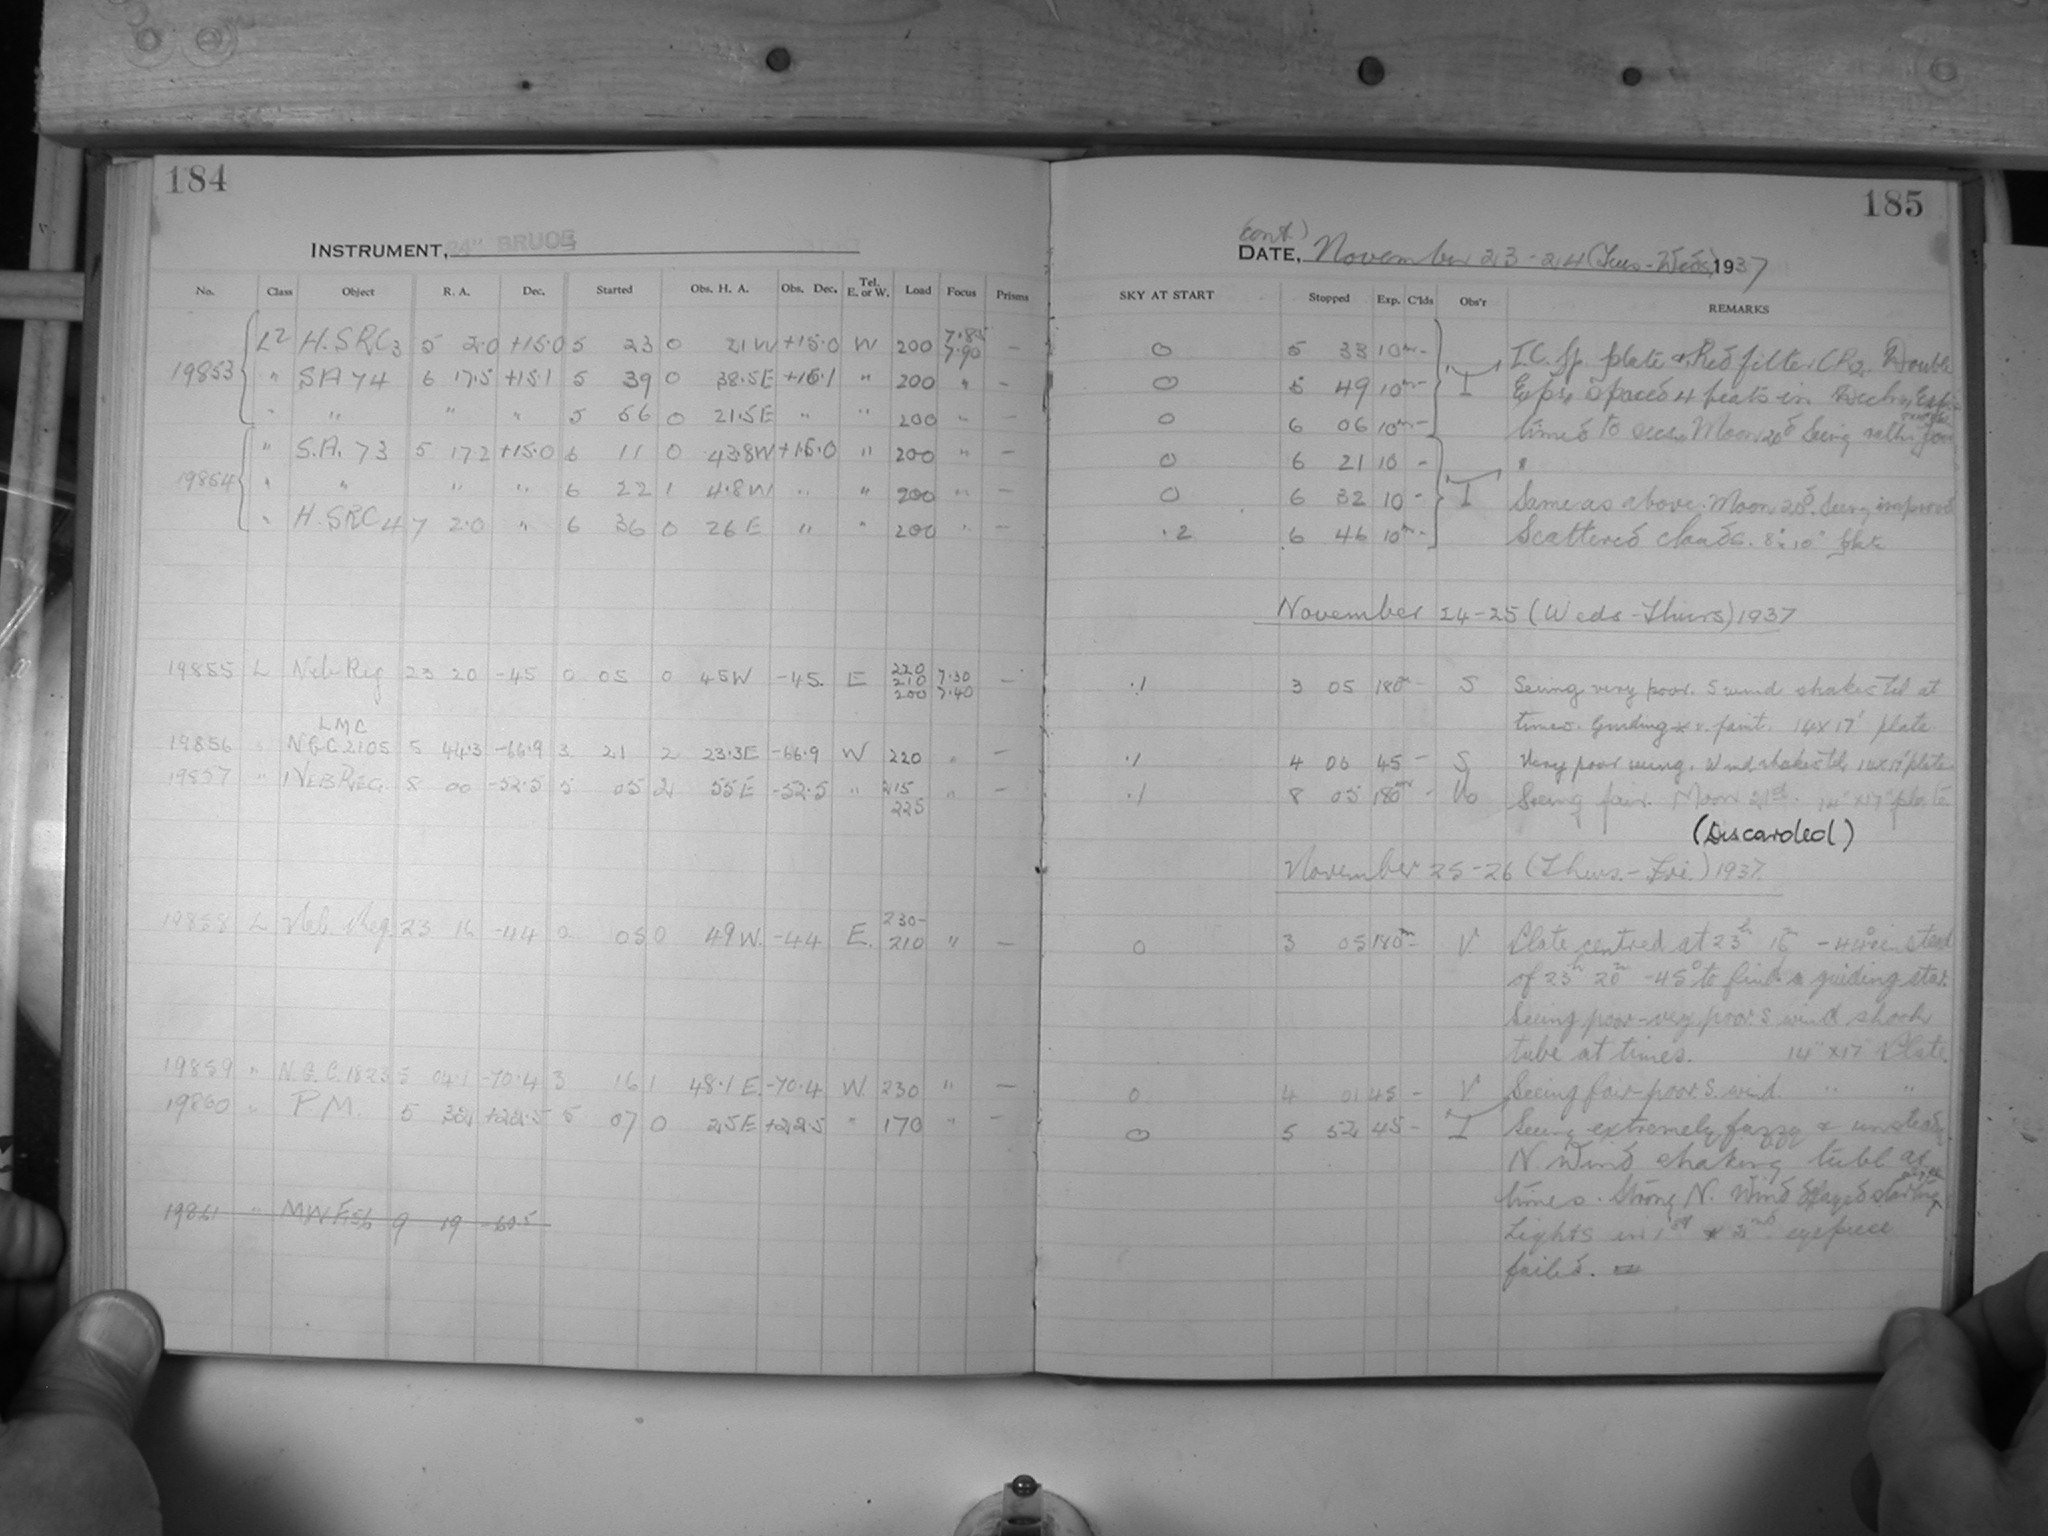 184
INSTRUMENT, 24" BRUCE
No. Class Object R. A. Dec. Started Obs. H. A. Obs. Dec. Tel. E. or W. Load Focus Prisms
19853 L2 H.SRC3 5 2.0 +15.0 5 23 0 21W +15.0 W 200 7.85 7.90 —
" SA 74 6 17.5 +15.1 5 39 0 38.5E +15.1 " 200 " —
" " " " 5 56 0 21.5E " " 200 " —
19854 " S.A. 73 5 17.2 +15.0 6 11 0 43.8W +15.0 " 200 " —
" " " " 6 22 1 4.8W " " 200 " —
" H.SRC4 7 2.0 " 6 36 0 26E " " 200 " —
19855 L Neb. Reg 23 20 -45 0 05 0 45W -45. E 220 210 200 7.30 7.40 —
LMC
19856 " N.G.C 2105 5 44.3 -66.9 3 21 2 23.3E -66.9 W 220 " —
19857 " NEB REG. 8 00 -52.5 5 05 2 55E -52.5 " 215 225 " —
19858 L Neb. Reg. 23 16 -44 0 05 0 49W. -44 E. 230- 210 " —
19859 " N.G.C. 1823 5 04.1 -70.4 3 16 1 48.1E. -70.4 W. 230 " —
19860 " P.M. 5 32 +22.5 5 07 0 25E +22.5 " 170 " —
19861 " MWF 56 9 19 -60.5
185
(cont.)
DATE, November 23-24 (Tues-Weds) 1937
SKY AT START Stopped Exp. C'lds Obs'r REMARKS
0 5 33 10m - I.C. Sp. plate & Red filter Double
0 5 49 10m - I Exps. spaced 4 beats in
0 6 06 10m - timed to Moon 20° Seeing rather poor
0 6 21 10 - "
0 6 32 10 - I Same as above. Moon 20°. Seeing improved
.2 6 46 10m - Scattered clouds. 8 x 10" plate
November 24-25 (Weds-Thurs) 1937
.1 3 05 180m - S Seeing very poor. S wind shakes tel at
times. Guiding * v. faint. 14 x 17" plate
.1 4 06 45 - S Very poor seeing. Wind shakes tel. 14 x 17" plate
.1 8 05 180m - Vo Seeing fair. Moon 21d. 14" x 17" plate
(Discarded)
November 25-26 (Thurs.-Fri.) 1937.
0 3 05 180m - V Plate centred at 23h 16m -44° instead
of 23h 20m -45° to find a guiding star.
Seeing poor-very poor. S wind shook
tube at times. 14" x 17" Plate
0 4 01 45 - V Seeing fair-poor. S. wind. " "
0 5 52 45 - I Seeing extremely fuzzy & unsteady.
N. Wind shaking tube at
times. Strong N. Wind delayed starting
Lights in 1st & 2nd eyepiece
failed.